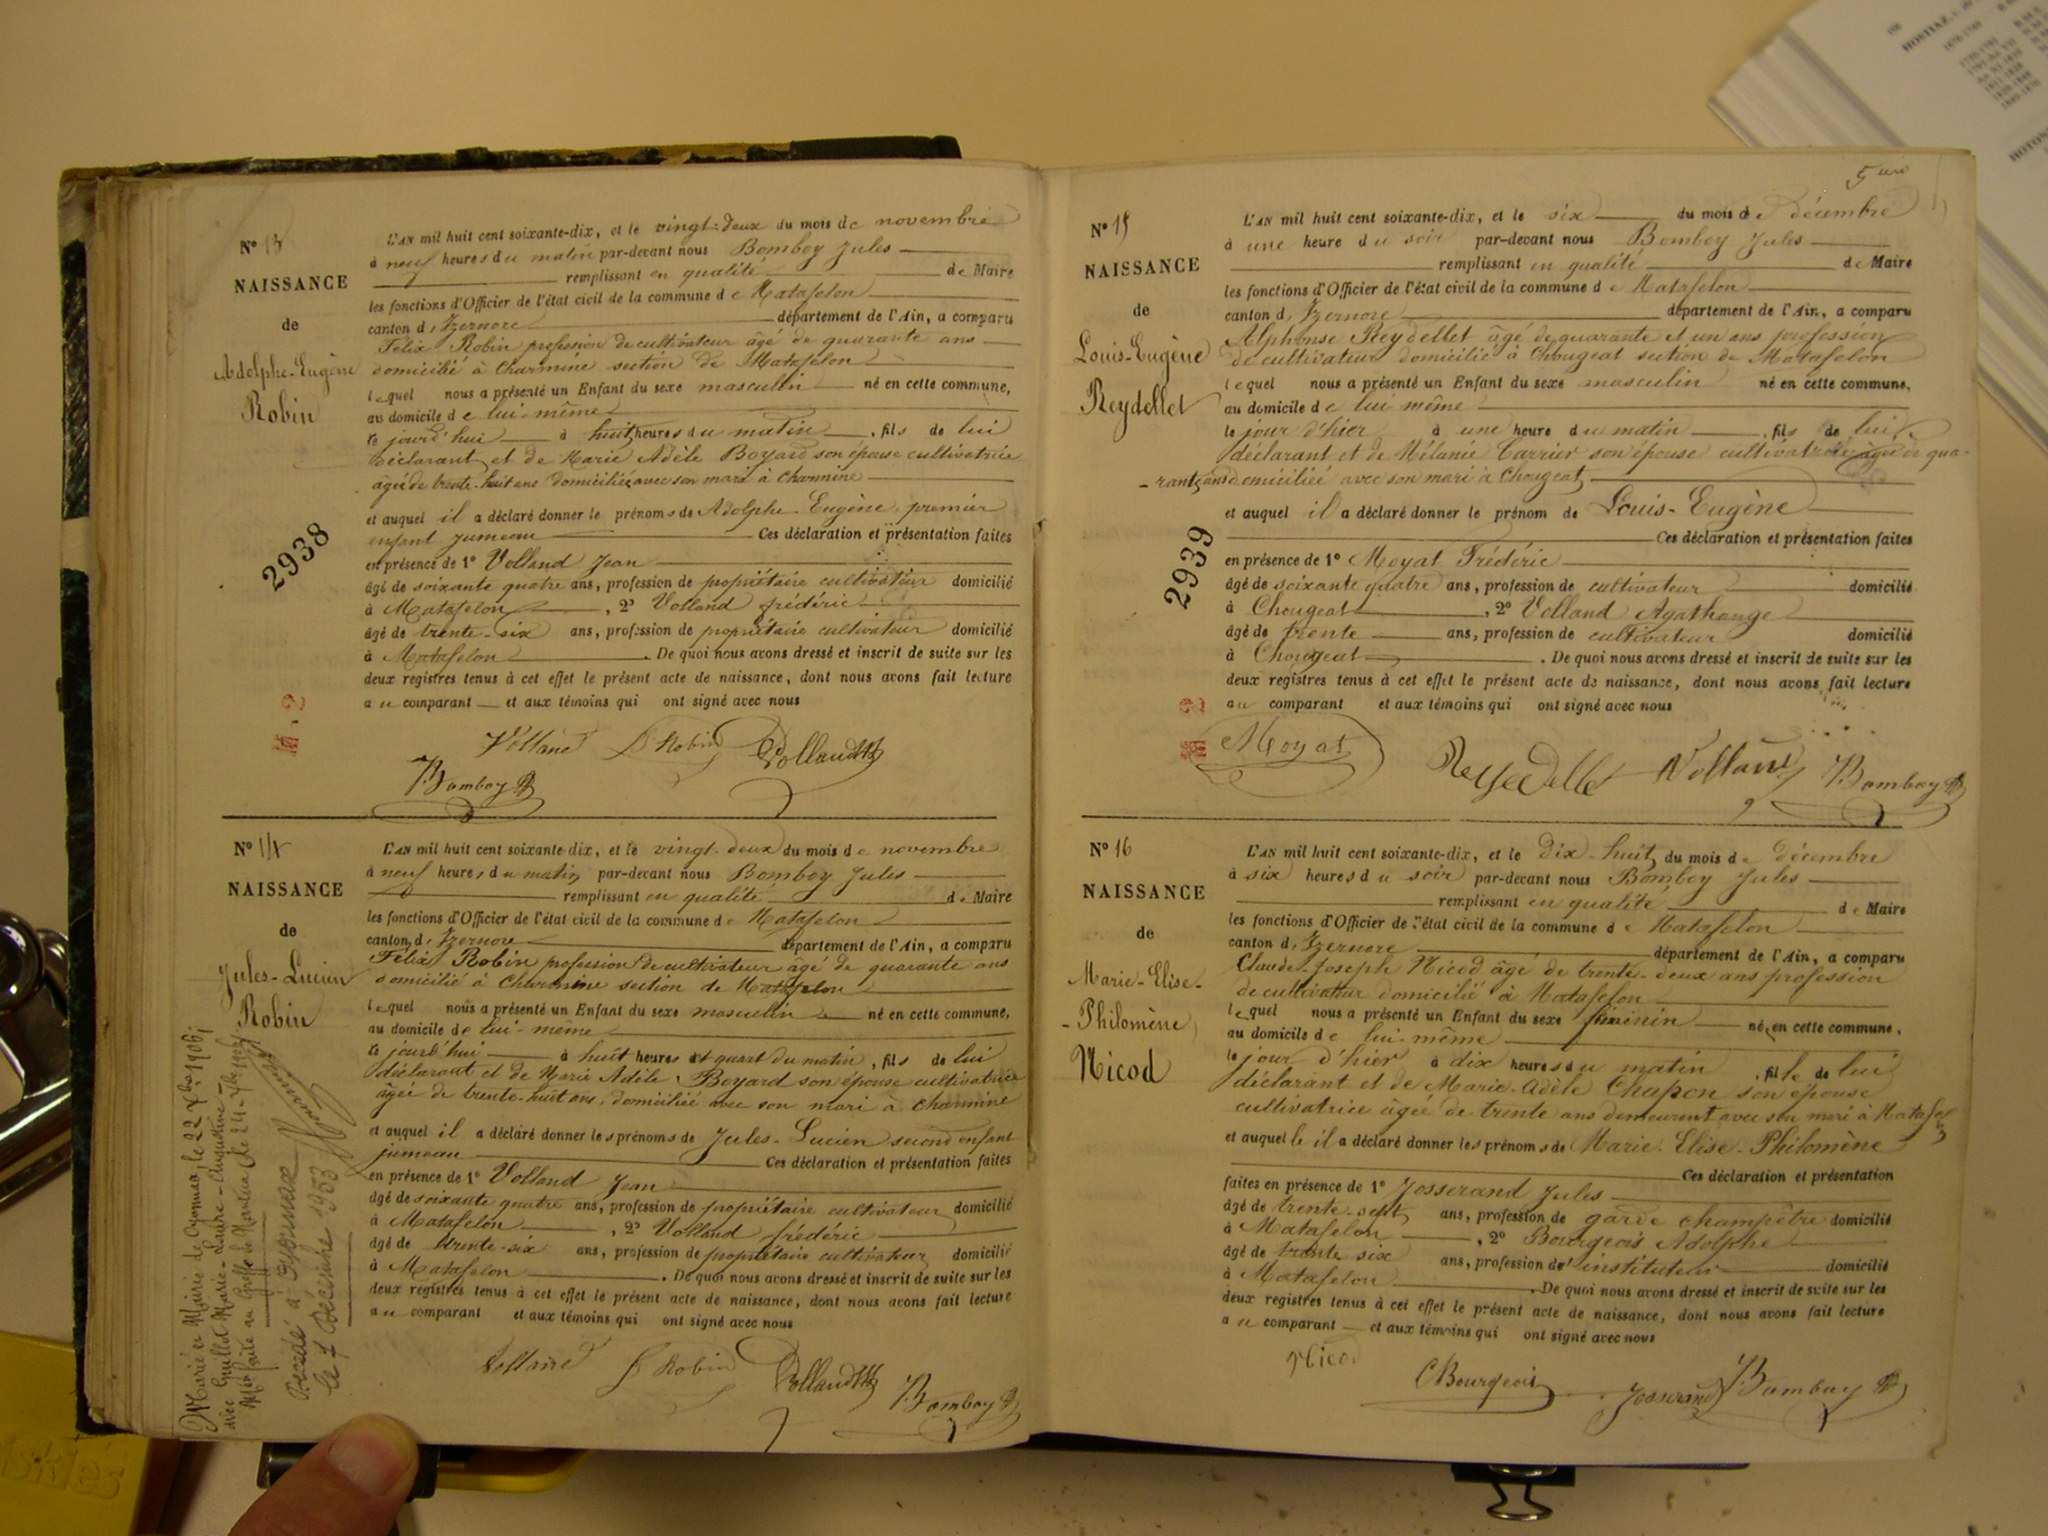 N° 13
NAISSANCE
de
Adolphe-Eugène
Robin
2938
L'AN mil huit cent soixante-dix, et le vingt-deux du mois de novembre
à neuf heures du matin par-devant nous Bomboy Jules
remplissant en qualité de Maire
les fonctions d'Officier de l'état civil de la commune de Matafelon
canton d'Izernore département de l'Ain, a comparu
Félix Robin profession de cultivateur âgé de quarante ans
domicilié à Charmine section de Matafelon
lequel nous a présenté un Enfant du sexe masculin né en cette commune,
au domicile de lui-même
le jourd'hui à huit heures du matin, fils de lui
déclarant et de Marie Adèle Boyard son épouse cultivatrice
âgée de trente-huit ans domiciliée avec son mari à Charmine
et auquel il a déclaré donner les prénoms de Adolphe-Eugène, premier
enfant jumeau Ces déclaration et présentation faites
en présence de 1° Volland Jean
âgé de soixante quatre ans, profession de propriétaire cultivateur domicilié
à Matafelon, 2° Volland frédéric
âgé de trente-six ans, profession de propriétaire cultivateur domicilié
à Matafelon. De quoi nous avons dressé et inscrit de suite sur les
deux registres tenus à cet effet le présent acte de naissance, dont nous avons fait lecture
au comparant et aux témoins qui ont signé avec nous
Volland F Robin Volland
Bomboy
N° 14
NAISSANCE
de
Jules-Lucien
Robin
Marié en Mairie de Oyonnax, le 22 Xbre 1906;
avec Guillot Marie-Laure-Augustine
Décédé à Oyonnax
le 7 Décembre 1953
L'AN mil huit cent soixante-dix, et le vingt-deux du mois de novembre
à neuf heures du matin par-devant nous Bomboy Jules
remplissant en qualité de Maire
les fonctions d'Officier de l'état civil de la commune de Matafelon
canton d'Izernore département de l'Ain, a comparu
Félix Robin profession de cultivateur âgé de quarante ans
domicilié à Charmine section de Matafelon
lequel nous a présenté un Enfant du sexe masculin né en cette commune,
au domicile de lui-même
le jourd'hui à huit heures et quart du matin, fils de lui
déclarant et de Marie Adèle Boyard son épouse cultivatrice
âgée de trente-huit ans, domiciliée avec son mari à Charmine
et auquel il a déclaré donner les prénoms de Jules-Lucien second enfant
jumeau Ces déclaration et présentation faites
en présence de 1° Volland Jean
âgé de soixante quatre ans, profession de propriétaire cultivateur domicilié
à Matafelon, 2° Volland frédéric
âgé de trente-six ans, profession de propriétaire cultivateur domicilié
à Matafelon. De quoi nous avons dressé et inscrit de suite sur les
deux registres tenus à cet effet le présent acte de naissance, dont nous avons fait lecture
au comparant et aux témoins qui ont signé avec nous
Volland F Robin Volland Bomboy
N° 15
NAISSANCE
de
Louis-Eugène
Reydellet
2939
L'AN mil huit cent soixante-dix, et le six du mois de décembre
à une heure du soir par-devant nous Bomboy Jules
remplissant en qualité de Maire
les fonctions d'Officier de l'état civil de la commune de Matafelon
canton d'Izernore département de l'Ain, a comparu
Alphonse Reydellet âgé de quarante et un ans profession
de cultivateur domicilié à Chougeat section de Matafelon
lequel nous a présenté un Enfant du sexe masculin né en cette commune,
au domicile de lui même
le jour d'hier à une heure du matin, fils de lui
déclarant et de Mélanie Carrier son épouse cultivatrice âgée de qua-
-rante ans domiciliée avec son mari à Chougeat
et auquel il a déclaré donner le prénom de Louis-Eugène
Ces déclaration et présentation faites
en présence de 1° Moyat Frédéric
âgé de soixante quatre ans, profession de cultivateur domicilié
à Chougeat, 2° Volland Agathange
âgé de trente ans, profession de cultivateur domicilié
à Chougeat. De quoi nous avons dressé et inscrit de suite sur les
deux registres tenus à cet effet le présent acte de naissance, dont nous avons fait lecture
au comparant et aux témoins qui ont signé avec nous
Moyat Reydellet Volland Bomboy
N° 16
NAISSANCE
de
Marie-Elise-
-Philomène
Nicod
L'AN mil huit cent soixante-dix, et le dix-huit du mois de décembre
à six heures du soir par-devant nous Bomboy Jules
remplissant en qualité de Maire
les fonctions d'Officier de l'état civil de la commune de Matafelon
canton d'Izernore département de l'Ain, a comparu
Claude-Joseph Nicod âgé de trente-deux ans profession
de cultivateur domicilié à Matafelon
lequel nous a présenté un Enfant du sexe féminin né en cette commune,
au domicile de lui-même
le jour d'hier à dix heures du matin, fille de lui
déclarant et de Marie-Adèle Chapon son épouse
cultivatrice âgée de trente ans demeurant avec son mari à Matafelon
et auquelle il a déclaré donner les prénoms de Marie-Elise-Philomène
Ces déclaration et présentation
faites en présence de 1° Josserand Jules
âgé de trente-sept ans, profession de garde champêtre domicilié
à Matafelon, 2° Bourgeois Adolphe
âgé de trente six ans, profession d'instituteur domicilié
à Matafelon. De quoi nous avons dressé et inscrit de suite sur les
deux registres tenus à cet effet le présent acte de naissance, dont nous avons fait lecture
au comparant et aux témoins qui ont signé avec nous
Nicod
Bourgeois Josserand Bomboy